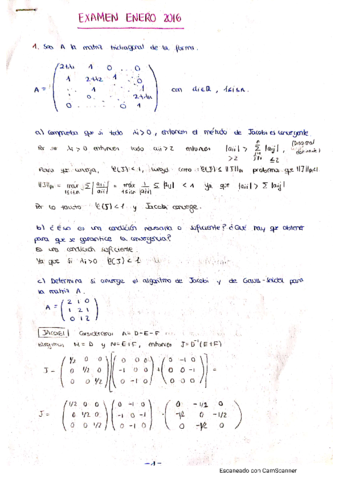 EXAMEN ENERO 2016
1. Sea A la matriz tridiagonal de la forma.
A = ( 2+λ₁ 1 0 ... 0
1 2+λ₂ 1
0 1
0 ... 0 1 ) con λi∈ℝ, 1≤i≤n.
a) Comprueba que si todo λi>0, entonces el método de Jacobi es convergente
λi>0 entonces todo aii>2 entonces |aii| > Σ |aij|,
>2 ≤2
converja, ρ(J)<1, como ρ(J)≤‖J‖∞
‖J‖∞ = máx Σ |aij/aii| = máx 1/|aii| Σ |aij| < 1 ya que |aii| > Σ |aij|
Por lo tanto ρ(J)<1 y Jacobi converge.
b) ¿Es una condición necesaria o suficiente? ¿Qué hay que obtener
para que se garantice la convergencia?
Es una condición suficiente.
Ya que si λi>0 ρ(J)<1
c) Determina si converge el algoritmo de Jacobi y de Gauss-Seidel para
la matriz A.
A = ( 2 1 0
1 2 1
0 1 2 )
JACOBI Consideramos A = D-E-F
M = D y N = E+F, entonces J = D⁻¹(E+F)
J = ( 1/2 0 0
0 1/2 0
0 0 1/2 ) =
J = ( 1/2 0 0
0 1/2 0
0 0 1/2 ) ( 0 -1 0
-1 0 -1
0 -1 0 ) = ( 0 -1/2 0
-1/2 0 -1/2
0 -1/2 0 )
-1-
Escaneado con CamScanner